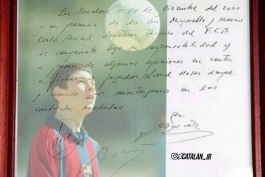 En Barcelona a 14 de Diciembre del 2000
y en presencia de los Srs. Minguella y Horacio
Carles Rexach Director técnico del F.C.B
se compromete bajo su responsabilidad y
a pesar de algunas opiniones en contra
a fichar al jugador Lionel Messi siempre
y cuando nos mantengamos en las
cantidades acordadas
@CATALAN_JR